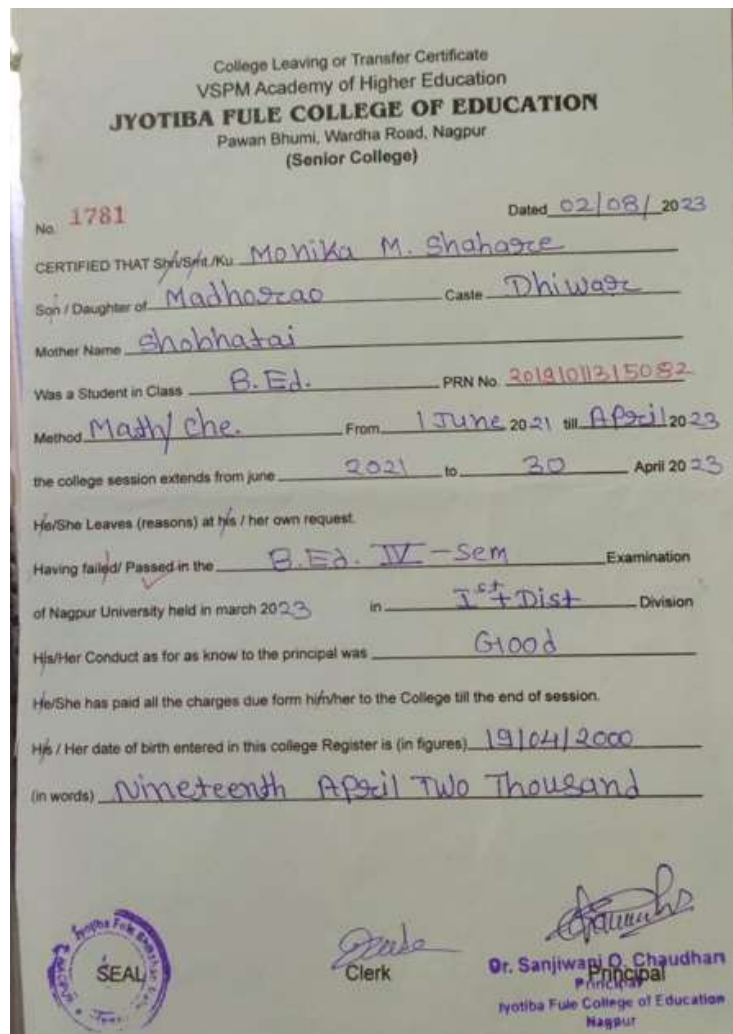 College Leaving or Transfer Certificate
VSPM Academy of Higher Education
JYOTIBA FULE COLLEGE OF EDUCATION
Pawan Bhumi, Wardha Road, Nagpur
(Senior College)
No. 1781 Dated 02/08/2023
CERTIFIED THAT Shri/Smt./Ku. Monika M. Shahare
Son / Daughter of Madhorao Caste Dhiwar
Mother Name Shobhatai
Was a Student in Class B.Ed. PRN No. 20191011315082
Method Math/ Che. From 1 June 2021 till April 2023
the college session extends from june 2021 to 30 April 2023
He/She Leaves (reasons) at his / her own request.
Having failed/ Passed in the B.Ed. IV - Sem Examination
of Nagpur University held in march 2023 in Ist + Dist Division
His/Her Conduct as for as know to the principal was Good
He/She has paid all the charges due form him/her to the College till the end of session.
His / Her date of birth entered in this college Register is (in figures) 19/04/2000
(in words) Nineteenth April Two Thousand
SEAL Clerk Principal
Dr. Sanjiwani O. Chaudhari
Principal
Jyotiba Fule College of Education
Nagpur